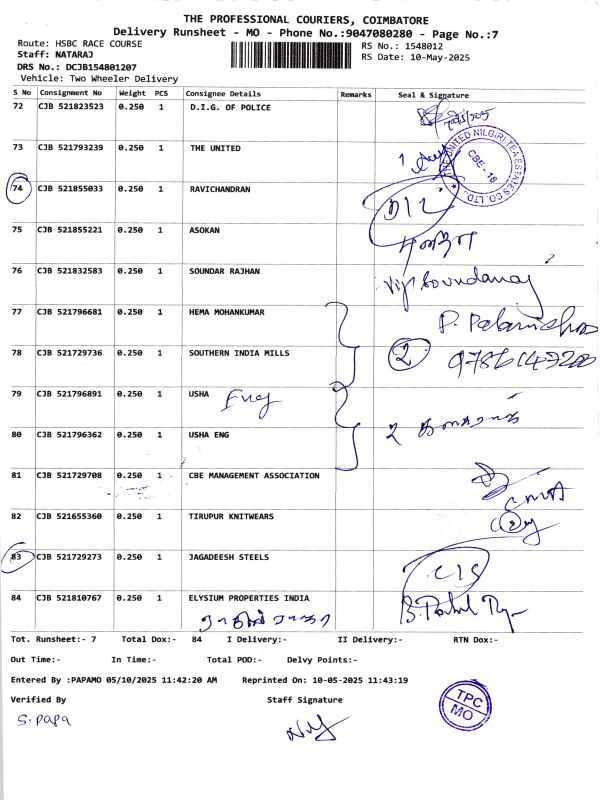 THE PROFESSIONAL COURIERS, COIMBATORE
Delivery Runsheet - MO - Phone No.:9047080280 - Page No.:7
Route: HSBC RACE COURSE
RS No.: 1548012
Staff: NATARAJ
RS Date: 10-May-2025
DRS No.: DCJB154801207
Vehicle: Two Wheeler Delivery
S No Consignment No Weight PCS Consignee Details Remarks Seal & Signature
72 CJB 521823523 0.250 1 D.I.G. OF POLICE
73 CJB 521793239 0.250 1 THE UNITED 1
THE UNITED NILGIRI TEA ESTATES CO. LTD.,
CBE - 18
74 CJB 521855033 0.250 1 RAVICHANDRAN
75 CJB 521855221 0.250 1 ASOKAN
76 CJB 521832583 0.250 1 SOUNDAR RAJHAN
77 CJB 521796681 0.250 1 HEMA MOHANKUMAR
78 CJB 521729736 0.250 1 SOUTHERN INDIA MILLS 2
79 CJB 521796891 0.250 1 USHA
80 CJB 521796362 0.250 1 USHA ENG 2
81 CJB 521729708 0.250 1 CBE MANAGEMENT ASSOCIATION
82 CJB 521655360 0.250 1 TIRUPUR KNITWEARS
83 CJB 521729273 0.250 1 JAGADEESH STEELS
84 CJB 521810767 0.250 1 ELYSIUM PROPERTIES INDIA
Tot. Runsheet:- 7 Total Dox:- 84 I Delivery:- II Delivery:- RTN Dox:-
Out Time:- In Time:- Total POD:- Delvy Points:-
Entered By :PAPAMO 05/10/2025 11:42:20 AM Reprinted On: 10-05-2025 11:43:19
Verified By Staff Signature
S. papa
TPC
MO